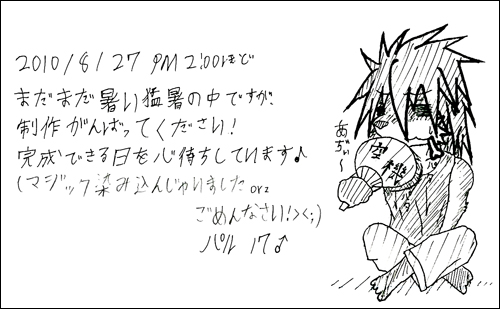 2010/8/27 PM 2:00ほど
まだまだ暑い猛暑の中ですが、
制作がんばってください!
完成できる日を心待ちしています♪
(マジック染み込んじゃいました orz
ごめんなさい!>く;)
パル 17♪
あぢぃ〜
空機
パタ